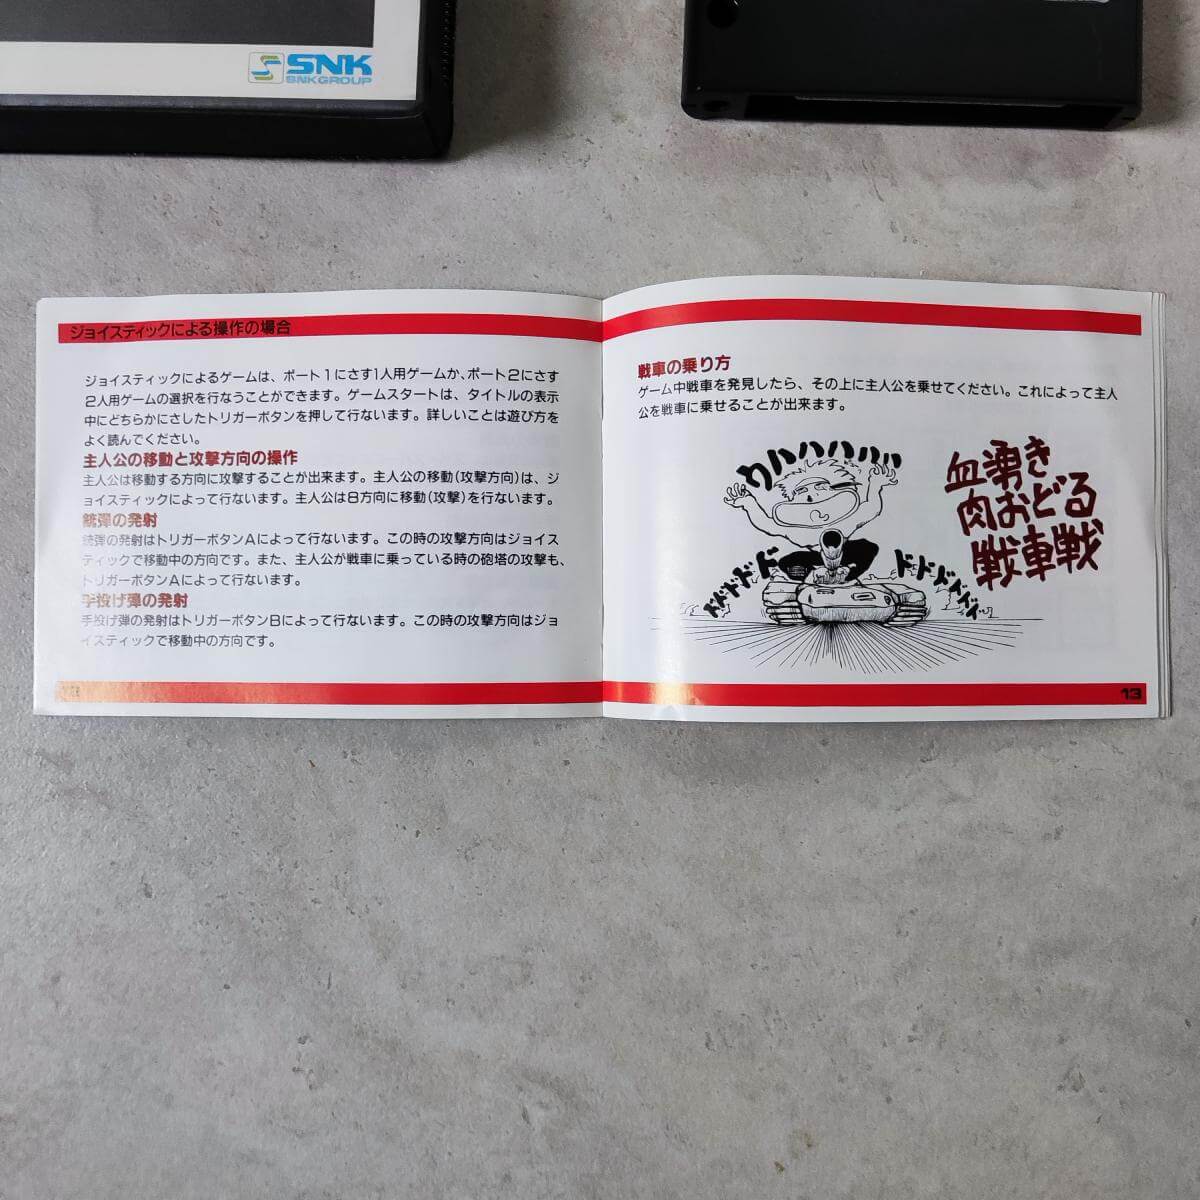 SNK
SNKGROUP
ジョイスティックによる操作の場合
ジョイスティックによるゲームは、ポート1にさす1人用ゲームか、ポート2にさす
2人用ゲームの選択を行なうことができます。ゲームスタートは、タイトルの表示
中にどちらかにさしたトリガーボタンを押して行ないます。詳しいことは遊び方を
よく読んでください。
主人公の移動と攻撃方向の操作
主人公は移動する方向に攻撃することが出来ます。主人公の移動(攻撃方向)は、ジ
ョイスティックによって行ないます。主人公は8方向に移動(攻撃)を行ないます。
銃弾の発射
銃弾の発射はトリガーボタンAによって行ないます。この時の攻撃方向はジョイス
ティックで移動中の方向です。また、主人公が戦車に乗っている時の砲塔の攻撃も、
トリガーボタンAによって行ないます。
手投げ弾の発射
手投げ弾の発射はトリガーボタンBによって行ないます。この時の攻撃方向はジョ
イスティックで移動中の方向です。
戦車の乗り方
ゲーム中戦車を発見したら、その上に主人公を乗せてください。これによって主人
公を戦車に乗せることが出来ます。
ワハハハハハハ
ドドドドド
ドドドドドド
血湧き
肉おどる
戦車戦
13